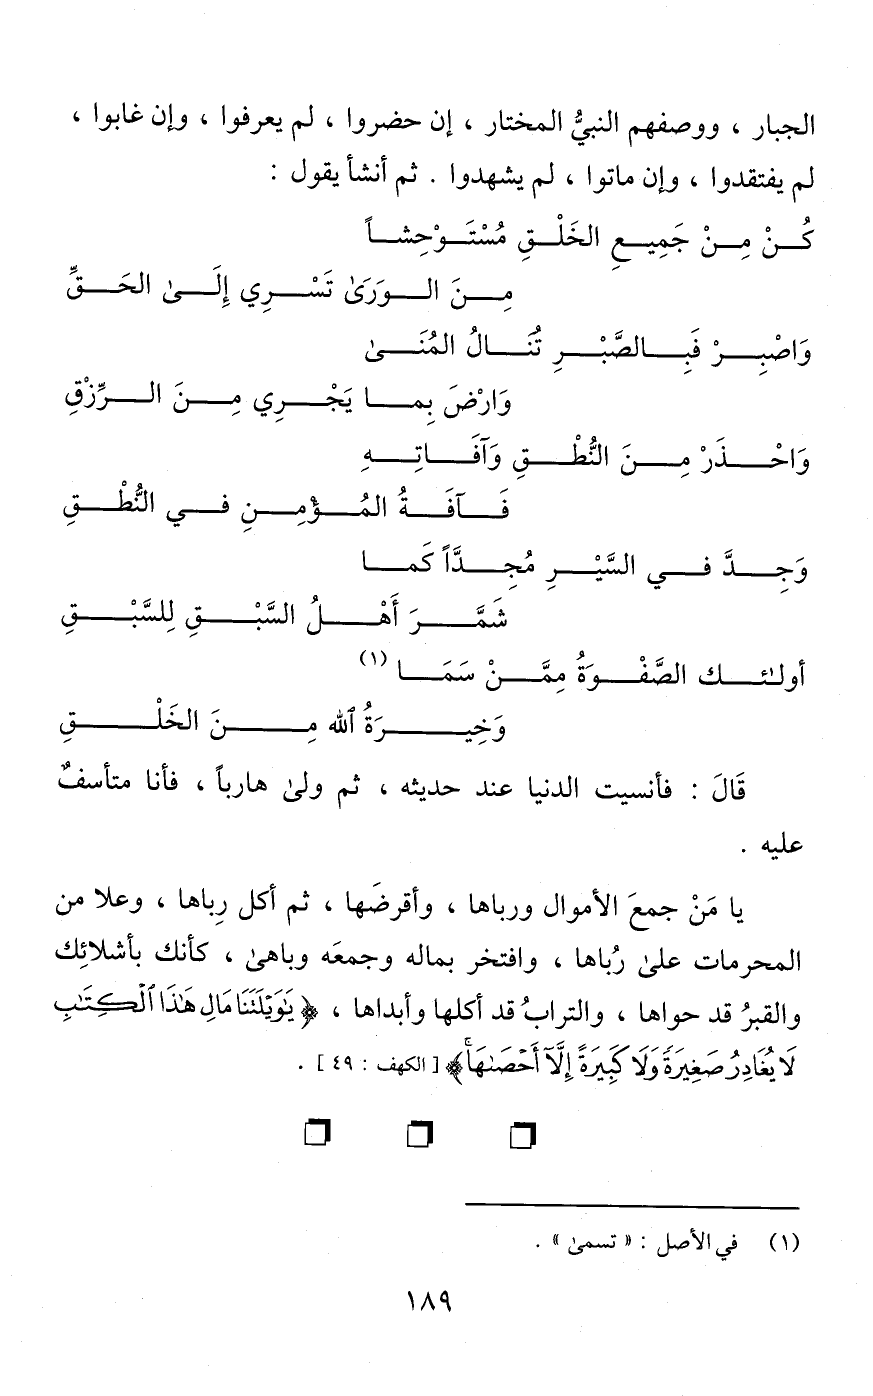 الجبار ، ووصفهم النبيُّ المختار ، إن حضروا ، لم يعرفوا ، وإن غابوا ،
لم يفتقدوا ، وإن ماتوا ، لم يشهدوا . ثم أنشأ يقول :
كُـنْ مِـنْ جَمِيـعِ الخَلْـقِ مُسْتَـوْحِشـاً
مِـنَ الـوَرَىٰ تَسْـرِي إِلَـىٰ الحَـقِّ
وَاصْبِـرْ فَبِـالصَّبْـرِ تُنَـالُ المُنَـىٰ
وَارْضَ بِمـا يَجْـرِي مِـنَ الـرِّزْقِ
وَاحْـذَرْ مِـنَ النُّطْـقِ وَآفَـاتِـهِ
فَـآفَـةُ المُـؤْمِـنِ فـي النُّطْـقِ
وَجِـدَّ فـي السَّيْـرِ مُجِـدَّاً كَمـا
شَمَّـرَ أَهْـلُ السَّبْـقِ لِلسَّبْـقِ
أولـٰئـك الصَّفْـوَةُ مِمَّـنْ سَمَـا (١)
وَخِيـرَةُ ٱلله مِـنَ الخَلْـقِ
قَالَ : فأنسيت الدنيا عند حديثه ، ثم ولىٰ هارباً ، فأنا متأسفٌ
عليه .
يا مَنْ جمعَ الأموال ورباها ، وأقرضَها ، ثم أكل رِباها ، وعلا من
المحرمات علىٰ رُباها ، وافتخر بماله وجمعَه وباهىٰ ، كأنك بأشلائِك
والقبرُ قد حواها ، والترابُ قد أكلها وأبداها ، ﴿ يَٰوَيْلَتَنَا مَالِ هَٰذَا ٱلْكِتَٰبِ
لَا يُغَادِرُ صَغِيرَةً وَلَا كَبِيرَةً إِلَّآ أَحْصَىٰهَا ۚ ﴾ [ الكهف : ٤٩ ] .
(١) في الأصل : « تسمىٰ » .
١٨٩